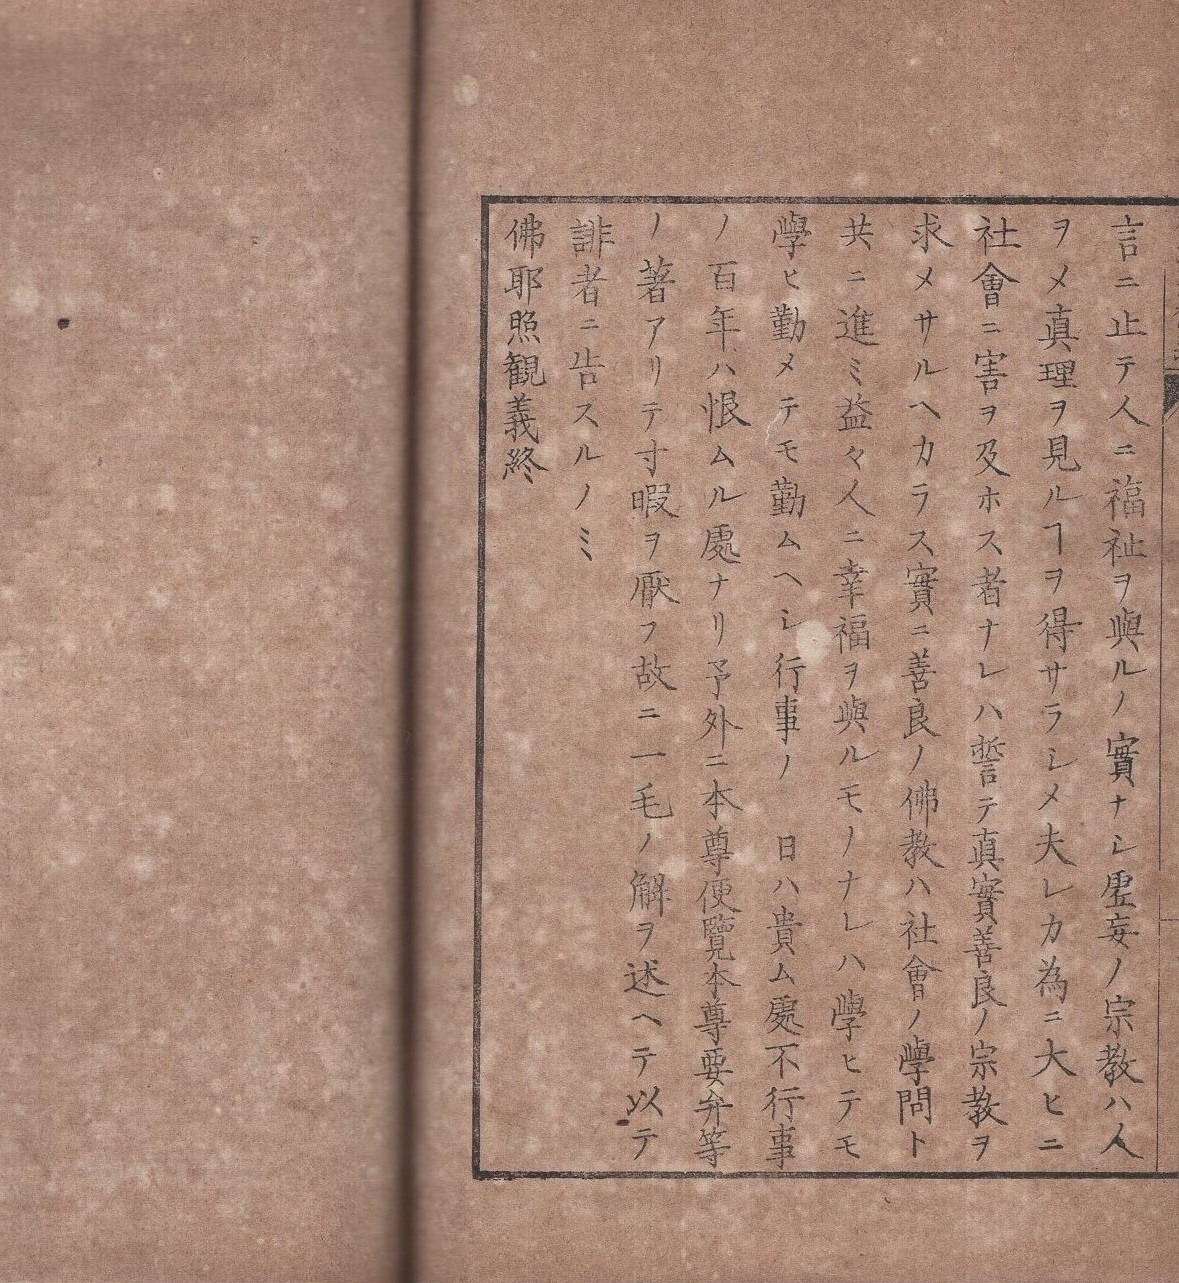 言ニ止テ人ニ福祉ヲ與ルノ實ナシ虚妄ノ宗教ハ人
ヲメ真理ヲ見ルヿヲ得サラシメ夫レカ為ニ大ヒニ
社會ニ害ヲ及ホス者ナレハ誓テ真實善良ノ宗教ヲ
求メサルヘカラス實ニ善良ノ佛教ハ社會ノ學問ト
共ニ進ミ益々人ニ幸福ヲ與ルモノナレハ學ヒテモ
學ヒ勤メテモ勤ムヘシ行事ノ 日ハ貴ム處不行事
ノ百年ハ恨ムル處ナリ予外ニ本尊便覽本尊要弁等
ノ著アリテ寸暇ヲ厭フ故ニ一毛ノ解ヲ述ヘテ以テ
誹者ニ告スルノミ
佛耶照観義終